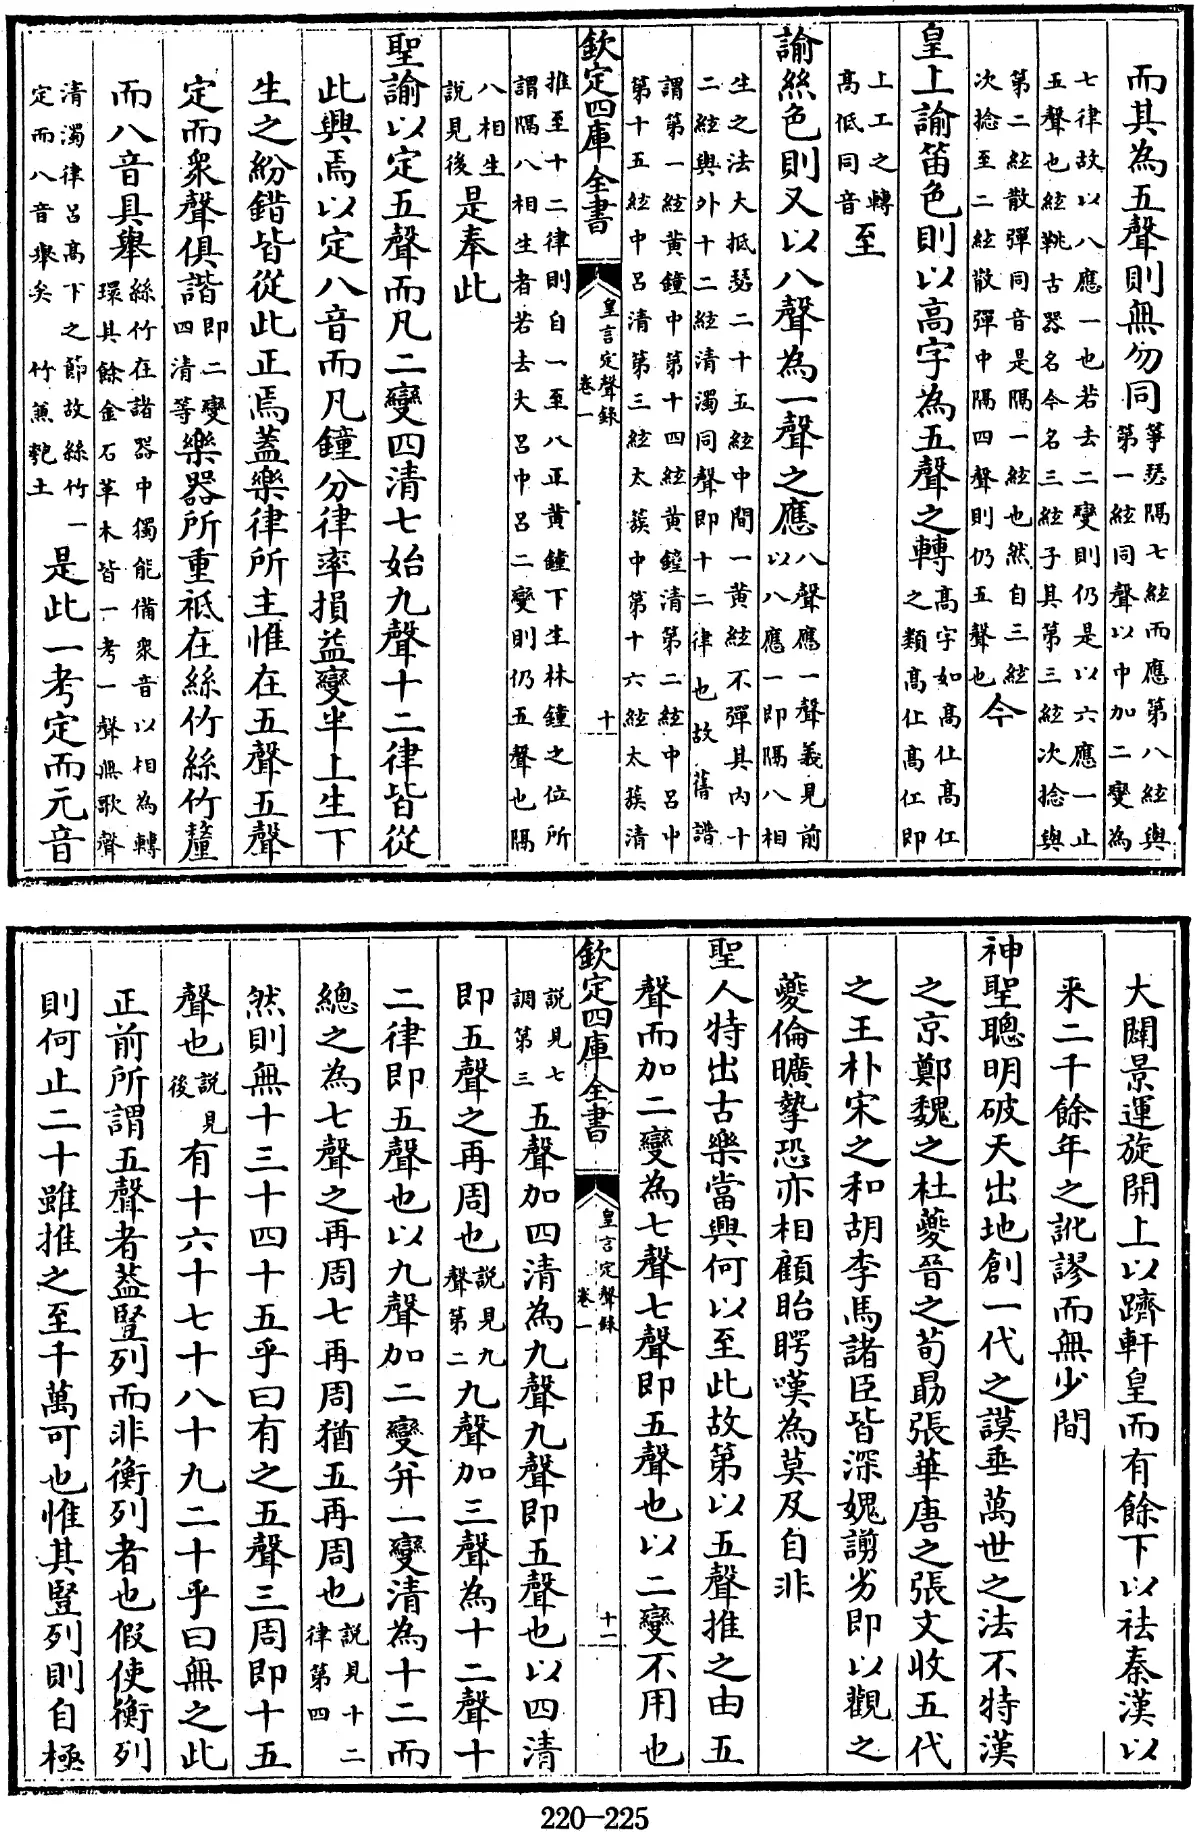 而其為五聲則無勿同筝瑟隔七絃而應第八絃與第一絃同聲以中加二變為
七律故以八應一也若去二變則仍是以六應一止五聲也絃鞉古器名今名三絃子其第三絃次捻與
第二絃散彈同音是隔一絃也然自三絃次捻至二絃散彈中隔四聲則仍五聲也今
皇上諭笛色則以高字為五聲之轉高字如高仩高仜之類高仩高仜即
上工之轉高低同音至
諭絲色則又以八聲為一聲之應八聲應一聲義見前以八應一即隔八相
生之法大抵瑟二十五絃中間一黄絃不彈其内十二絃與外十二絃清濁同聲即十二律也故舊譜
謂第一絃黄鐘中第十四絃黄鐘清第二絃中呂中第十五絃中呂清第三絃太蔟中第十六絃太蔟清
欽定四庫全書 皇言定聲錄 卷一 十
推至十二律則自一至八正黄鐘下生林鐘之位所謂隔八相生者若去大呂中呂二變則仍五聲也隔
八相生說見後是奉此
聖諭以定五聲而凡二變四清七始九聲十二律皆從
此興焉以定八音而凡鐘分律率損益變半上生下
生之紛錯皆從此正焉蓋樂律所主惟在五聲五聲
定而衆聲俱諧即二變四清等樂器所重祗在絲竹絲竹釐
而八音具舉絲竹在諸器中獨能備衆音以相為轉環其餘金石革木皆一考一聲無歌聲
清濁律呂高下之節故絲竹一定而八音舉矣 竹兼匏土是此一考定而元音
大闢景運旋開上以躋軒皇而有餘下以祛秦漢以
来二千餘年之訛謬而無少間
神聖聰明破天出地創一代之謨垂萬世之法不特漢
之京鄭魏之杜夔晉之荀勗張華唐之張文收五代
之王朴宋之和胡李馬諸臣皆深媿謭劣即以觀之
夔倫曠摯恐亦相顧眙腭嘆為莫及自非
聖人特出古樂當興何以至此故第以五聲推之由五
聲而加二變為七聲七聲即五聲也以二變不用也
欽定四庫全書 皇言定聲錄 卷一 十一
說見七調第三五聲加四清為九聲九聲即五聲也以四清
即五聲之再周也說見九聲第二九聲加三聲為十二聲十
二律即五聲也以九聲加二變并一變清為十二而
總之為七聲之再周七再周猶五再周也說見十二律第四
然則無十三十四十五乎曰有之五聲三周即十五
聲也說見後有十六十七十八十九二十乎曰無之此
正前所謂五聲者葢豎列而非衡列者也假使衡列
則何止二十雖推之至千萬可也惟其豎列則自極
220—225